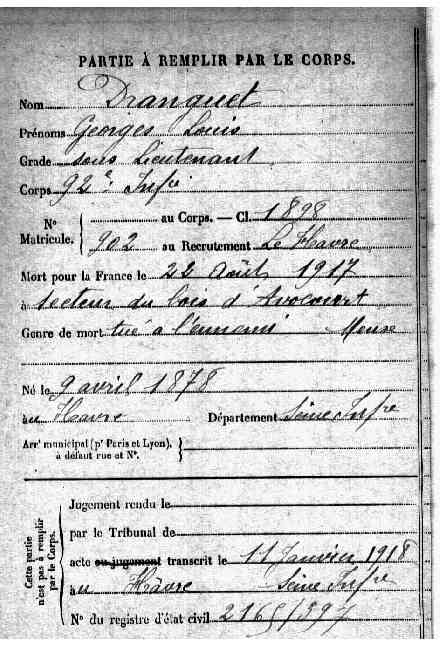 PARTIE À REMPLIR PAR LE CORPS.
Nom Dranguet
Prénoms Georges Louis
Grade sous Lieutenant
Corps 92e Infie
No Matricule. { au Corps. — Cl. 1898
902 au Recrutement Le Havre
Mort pour la France le 22 Août 1917
à secteur du bois d'Avocourt
Genre de mort tué à l'ennemi Meuse
Né le 9 avril 1878
au Havre Département Seine Infre
Arrt municipal (pr Paris et Lyon), à défaut rue et No. }
Cette partie n'est pas à remplir par le Corps.
Jugement rendu le
par le Tribunal de
acte ou jugement transcrit le 11 Janvier 1918
au Hâvre Seine Infre
No du registre d'état civil 2165/397